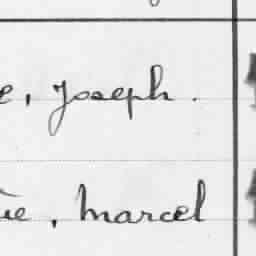 e, Joseph.
ie, Marcel